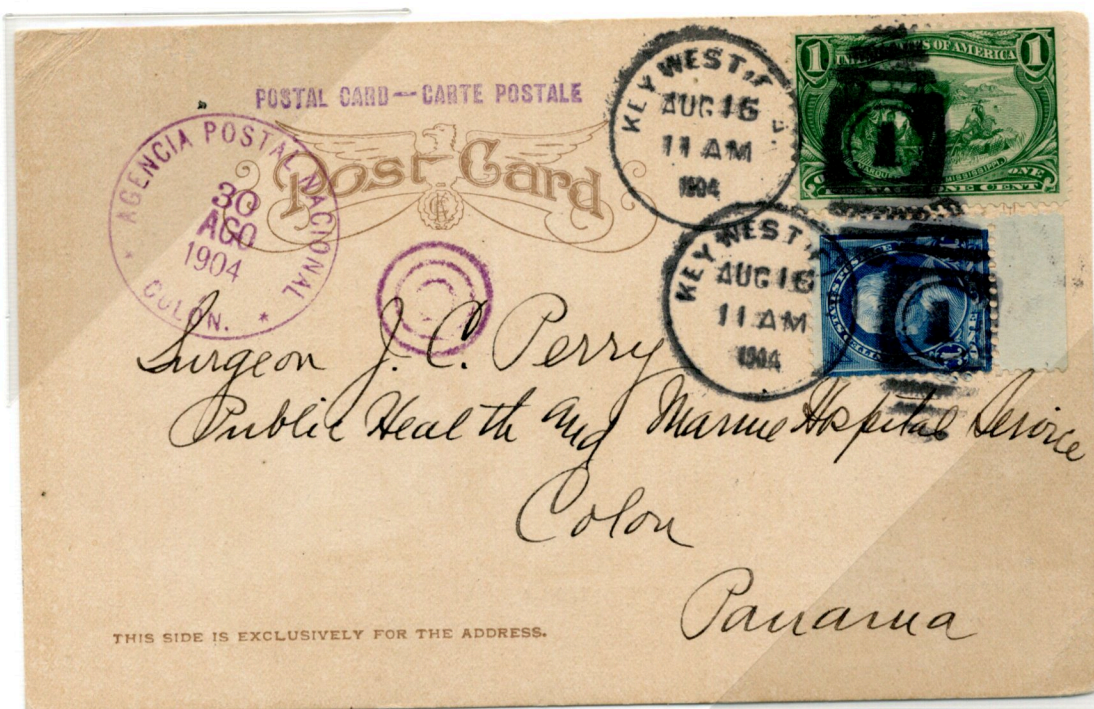 POSTAL CARD—CARTE POSTALE
Post Card
AGENCIA POSTAL NACIONAL
30
AGO
1904
* COLON. *
KEY WEST,
AUG 16
11 AM
1904
KEY WEST,
AUG 16
11 AM
1904
1 OF AMERICA 1
MISSISSIPPI
ONE CENT
Surgeon J. C. Perry
Public Health and Marine Hospital Service
Colon
Panama
THIS SIDE IS EXCLUSIVELY FOR THE ADDRESS.